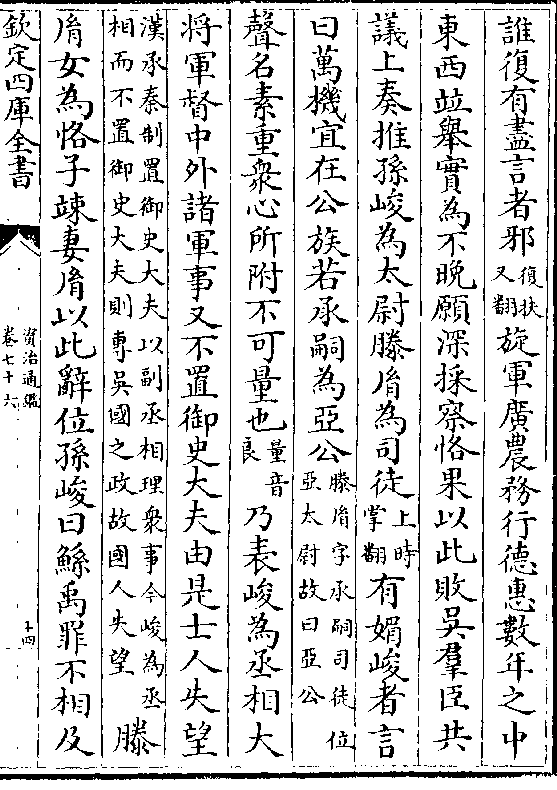 誰復有盡言者邪復扶又翻旋軍廣農務行德惠數年之中
東西並舉實為不晚願深採察恪果以此敗吳羣臣共
議上奏推孫峻為太尉滕胤為司徒上時掌翻有媚峻者言
曰萬機宜在公族若承嗣為亞公滕胤字承嗣司徒位亞太尉故曰亞公
聲名素重衆心所附不可量也量音良乃表峻為丞相大
将軍督中外諸軍事又不置御史大夫由是士人失望
漢承秦制置御史大夫以副丞相理衆事今峻為丞相而不置御史大夫則專吳國之政故國人失望滕
胤女為恪子竦妻胤以此辭位孫峻曰鯀禹罪不相及
欽定四庫全書
資治通鑑
卷七十六
十四